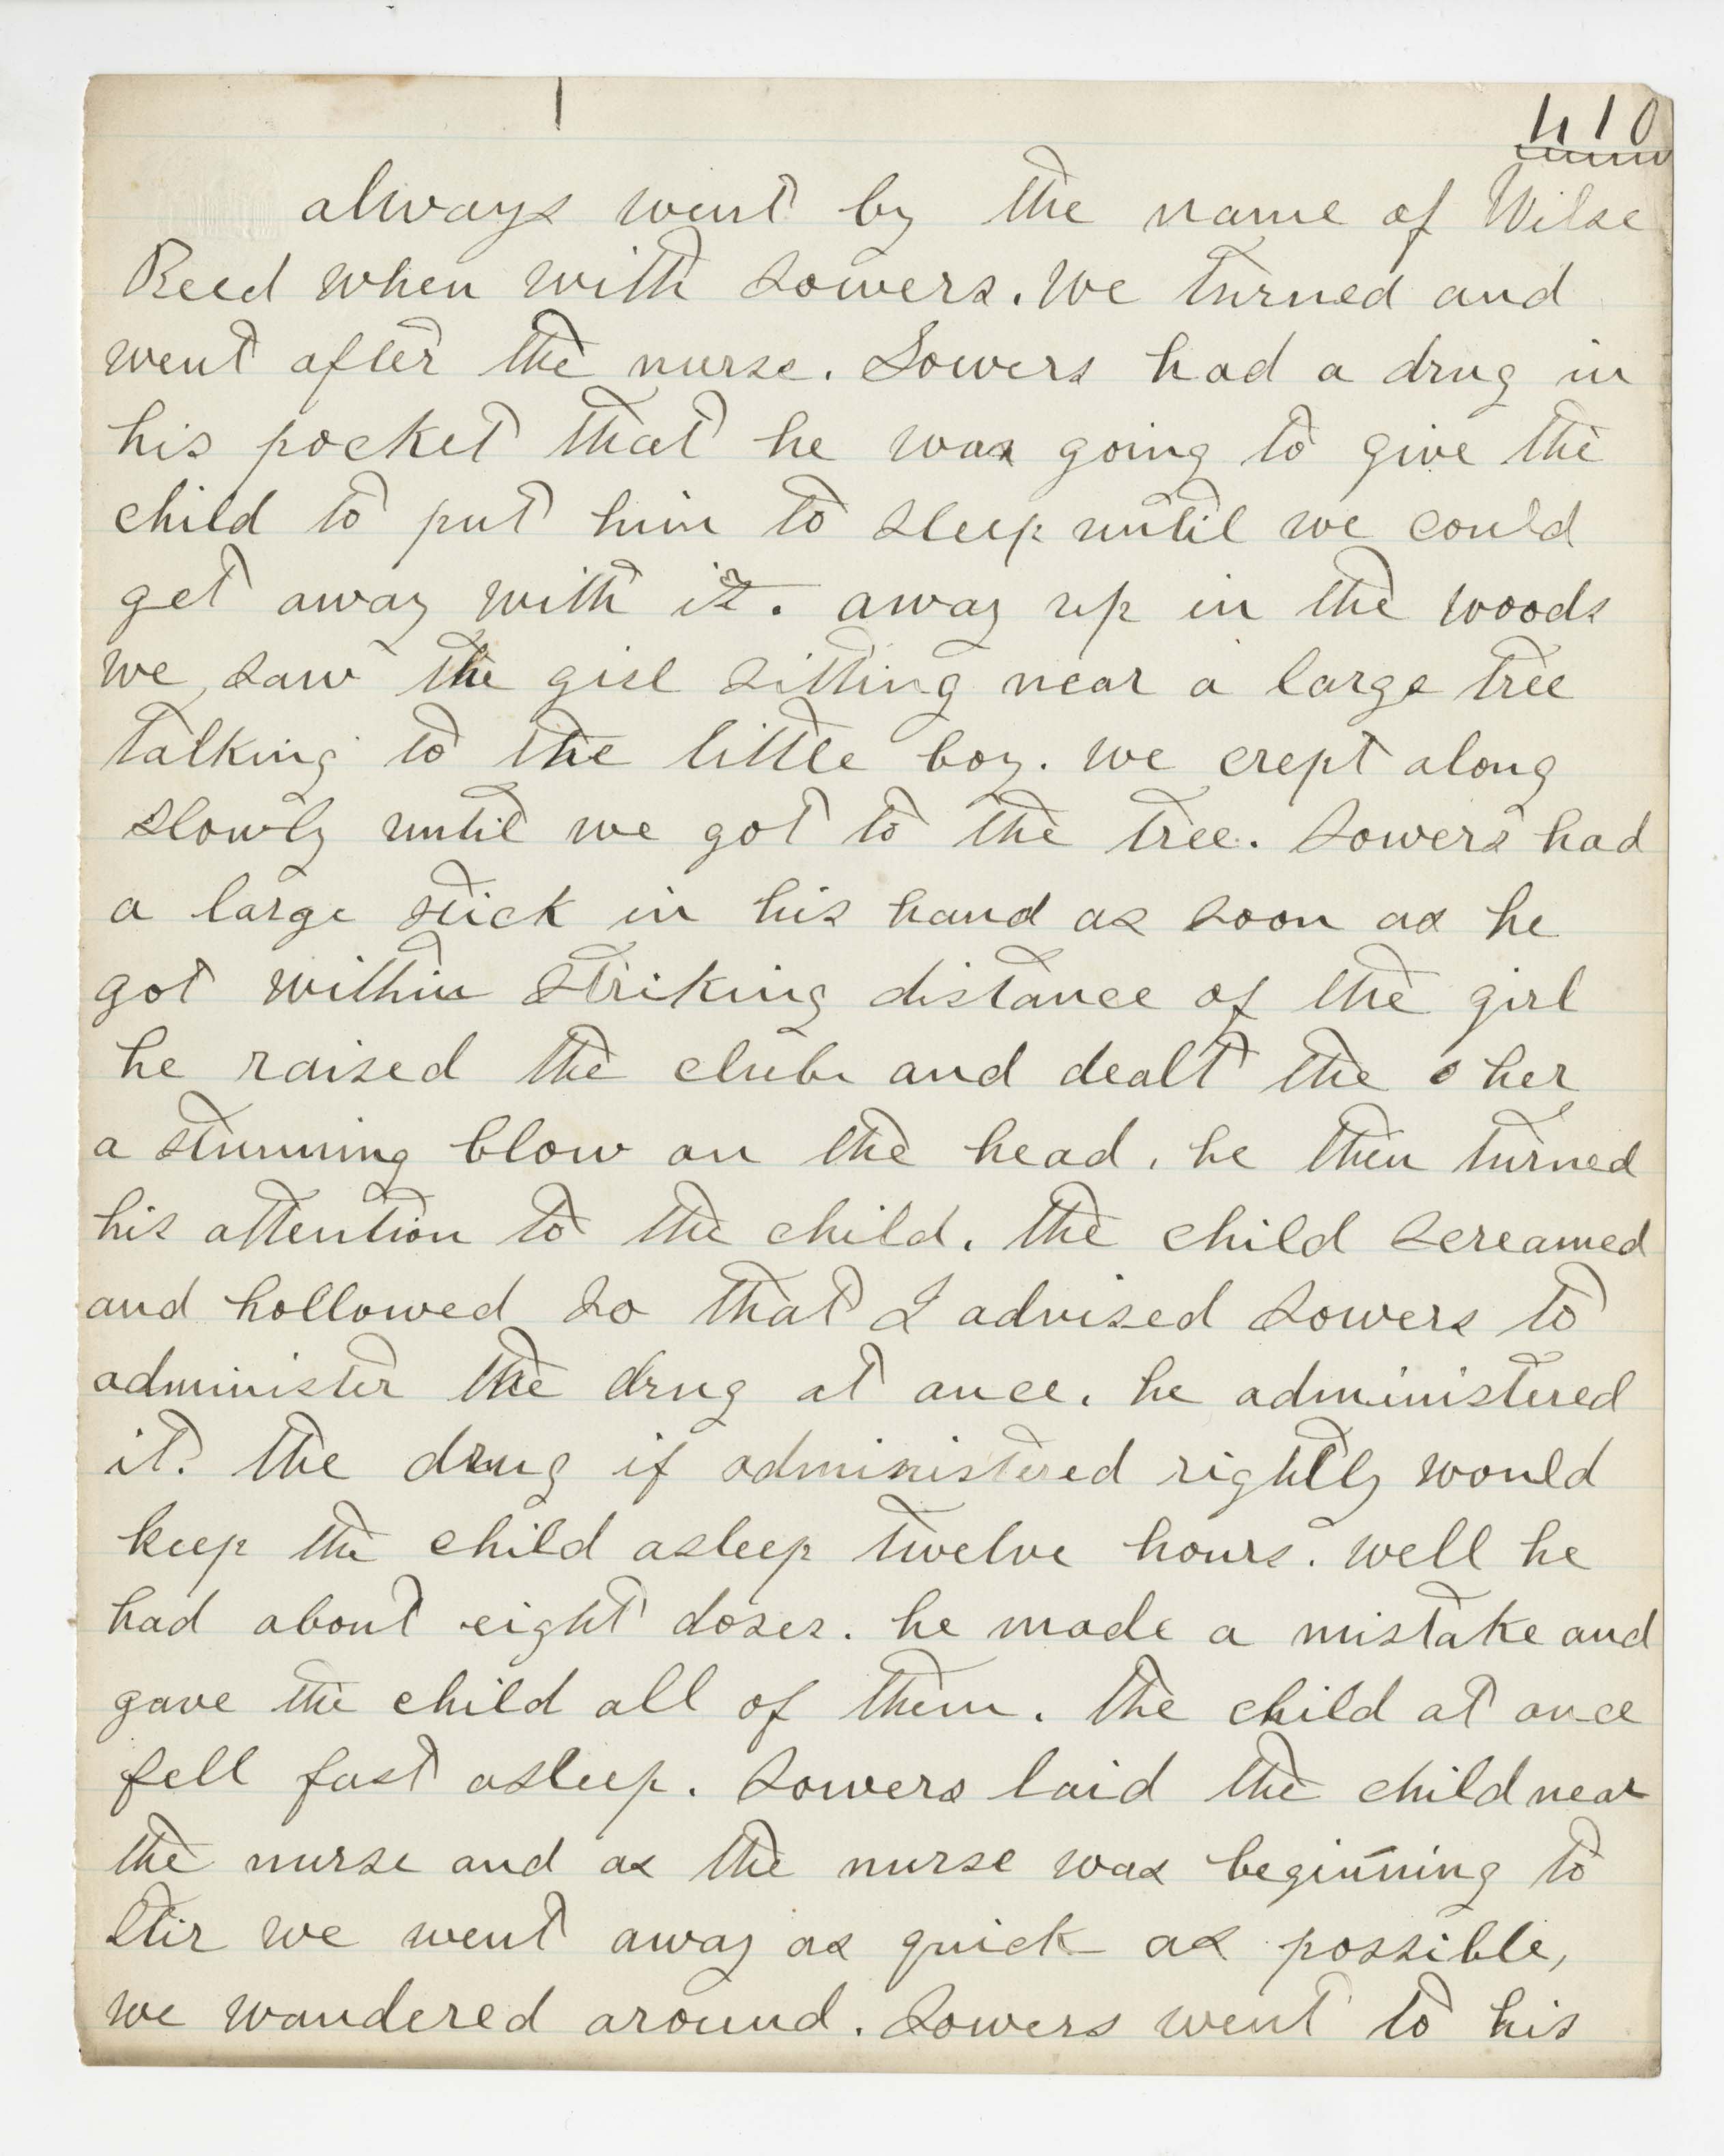 410
always went by the name of Wilse
Reed when with Sowers. We turned and
went after the nurse. Sowers had a drug in
his pocket that he was going to give the
child to put him to sleep until we could
get away with it. away up in the woods
we saw the girl sitting near a large tree
talking to the little boy. we crept along
slowly until we got to the tree. Sowers had
a large stick in his hand as soon as he
got within striking distance of the girl
he raised the club and dealt the o her
a stunning blow on the head. he then turned
his attention to the child. the child screamed
and hollowed so that I advised Sowers to
administer the drug at once. he administered
it. the drug if administered rightly would
keep the child asleep twelve hours. well he
had about eight doses. he made a mistake and
gave the child all of them. the child at once
fell fast asleep. Sowers laid the child near
the nurse and as the nurse was beginning to
stir we went away as quick as possible,
we wandered around. Sowers went to his